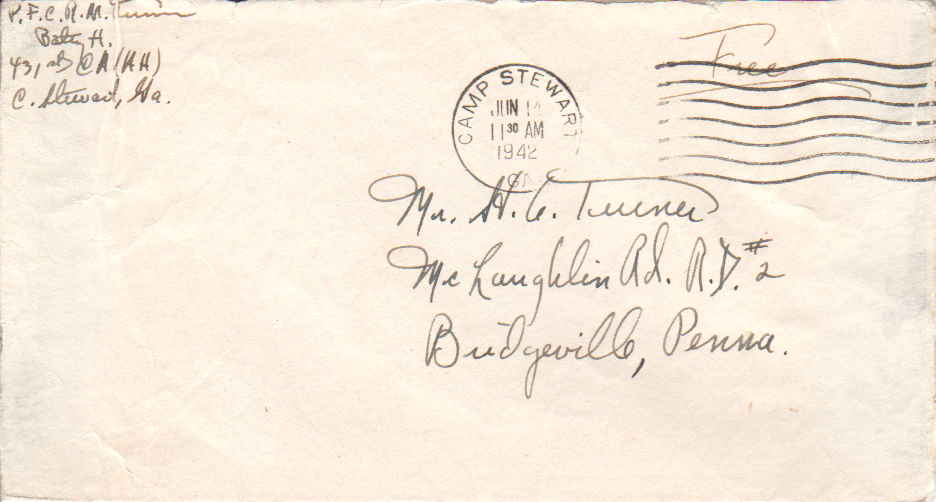 P.F.C. R.M. Turner
Baty H.
431st CA (AA)
C. Stewart, Ga.
CAMP STEWART
JUN 14
11 30 AM
1942
GA.
Free
Mr. H. C. Turner
McLaughlin Rd. R.D. #2
Bridgeville, Penna.